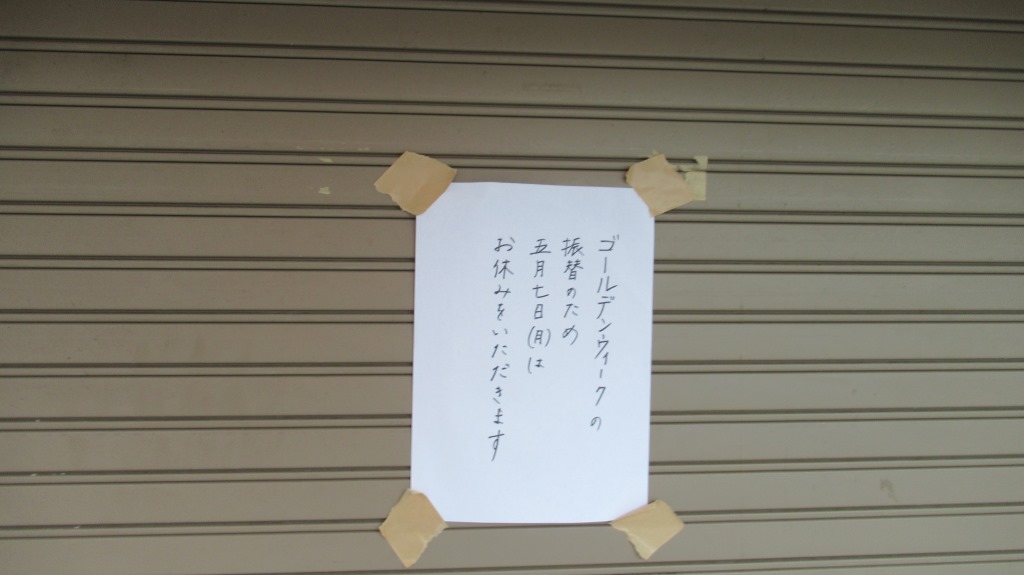 ゴールデンウィークの
振替のため
五月七日(月)は
お休みをいただきます